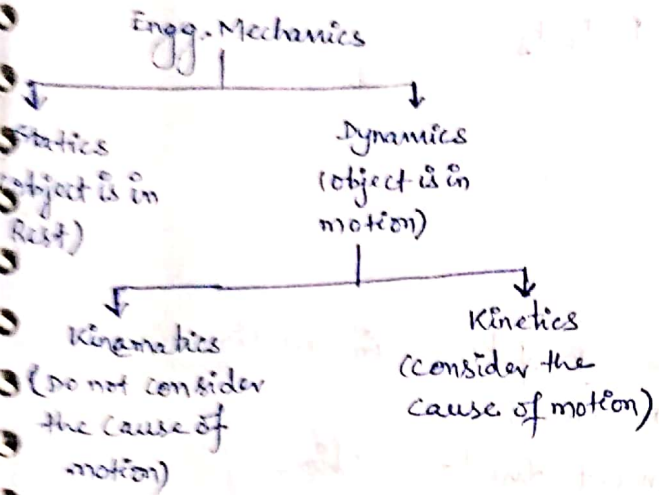 Engg. Mechanics
Statics
(object is in
Rest)
Dynamics
(object is in
motion)
Kinamatics
(Do not consider
the cause of
motion)
Kinetics
(consider the
cause of motion)